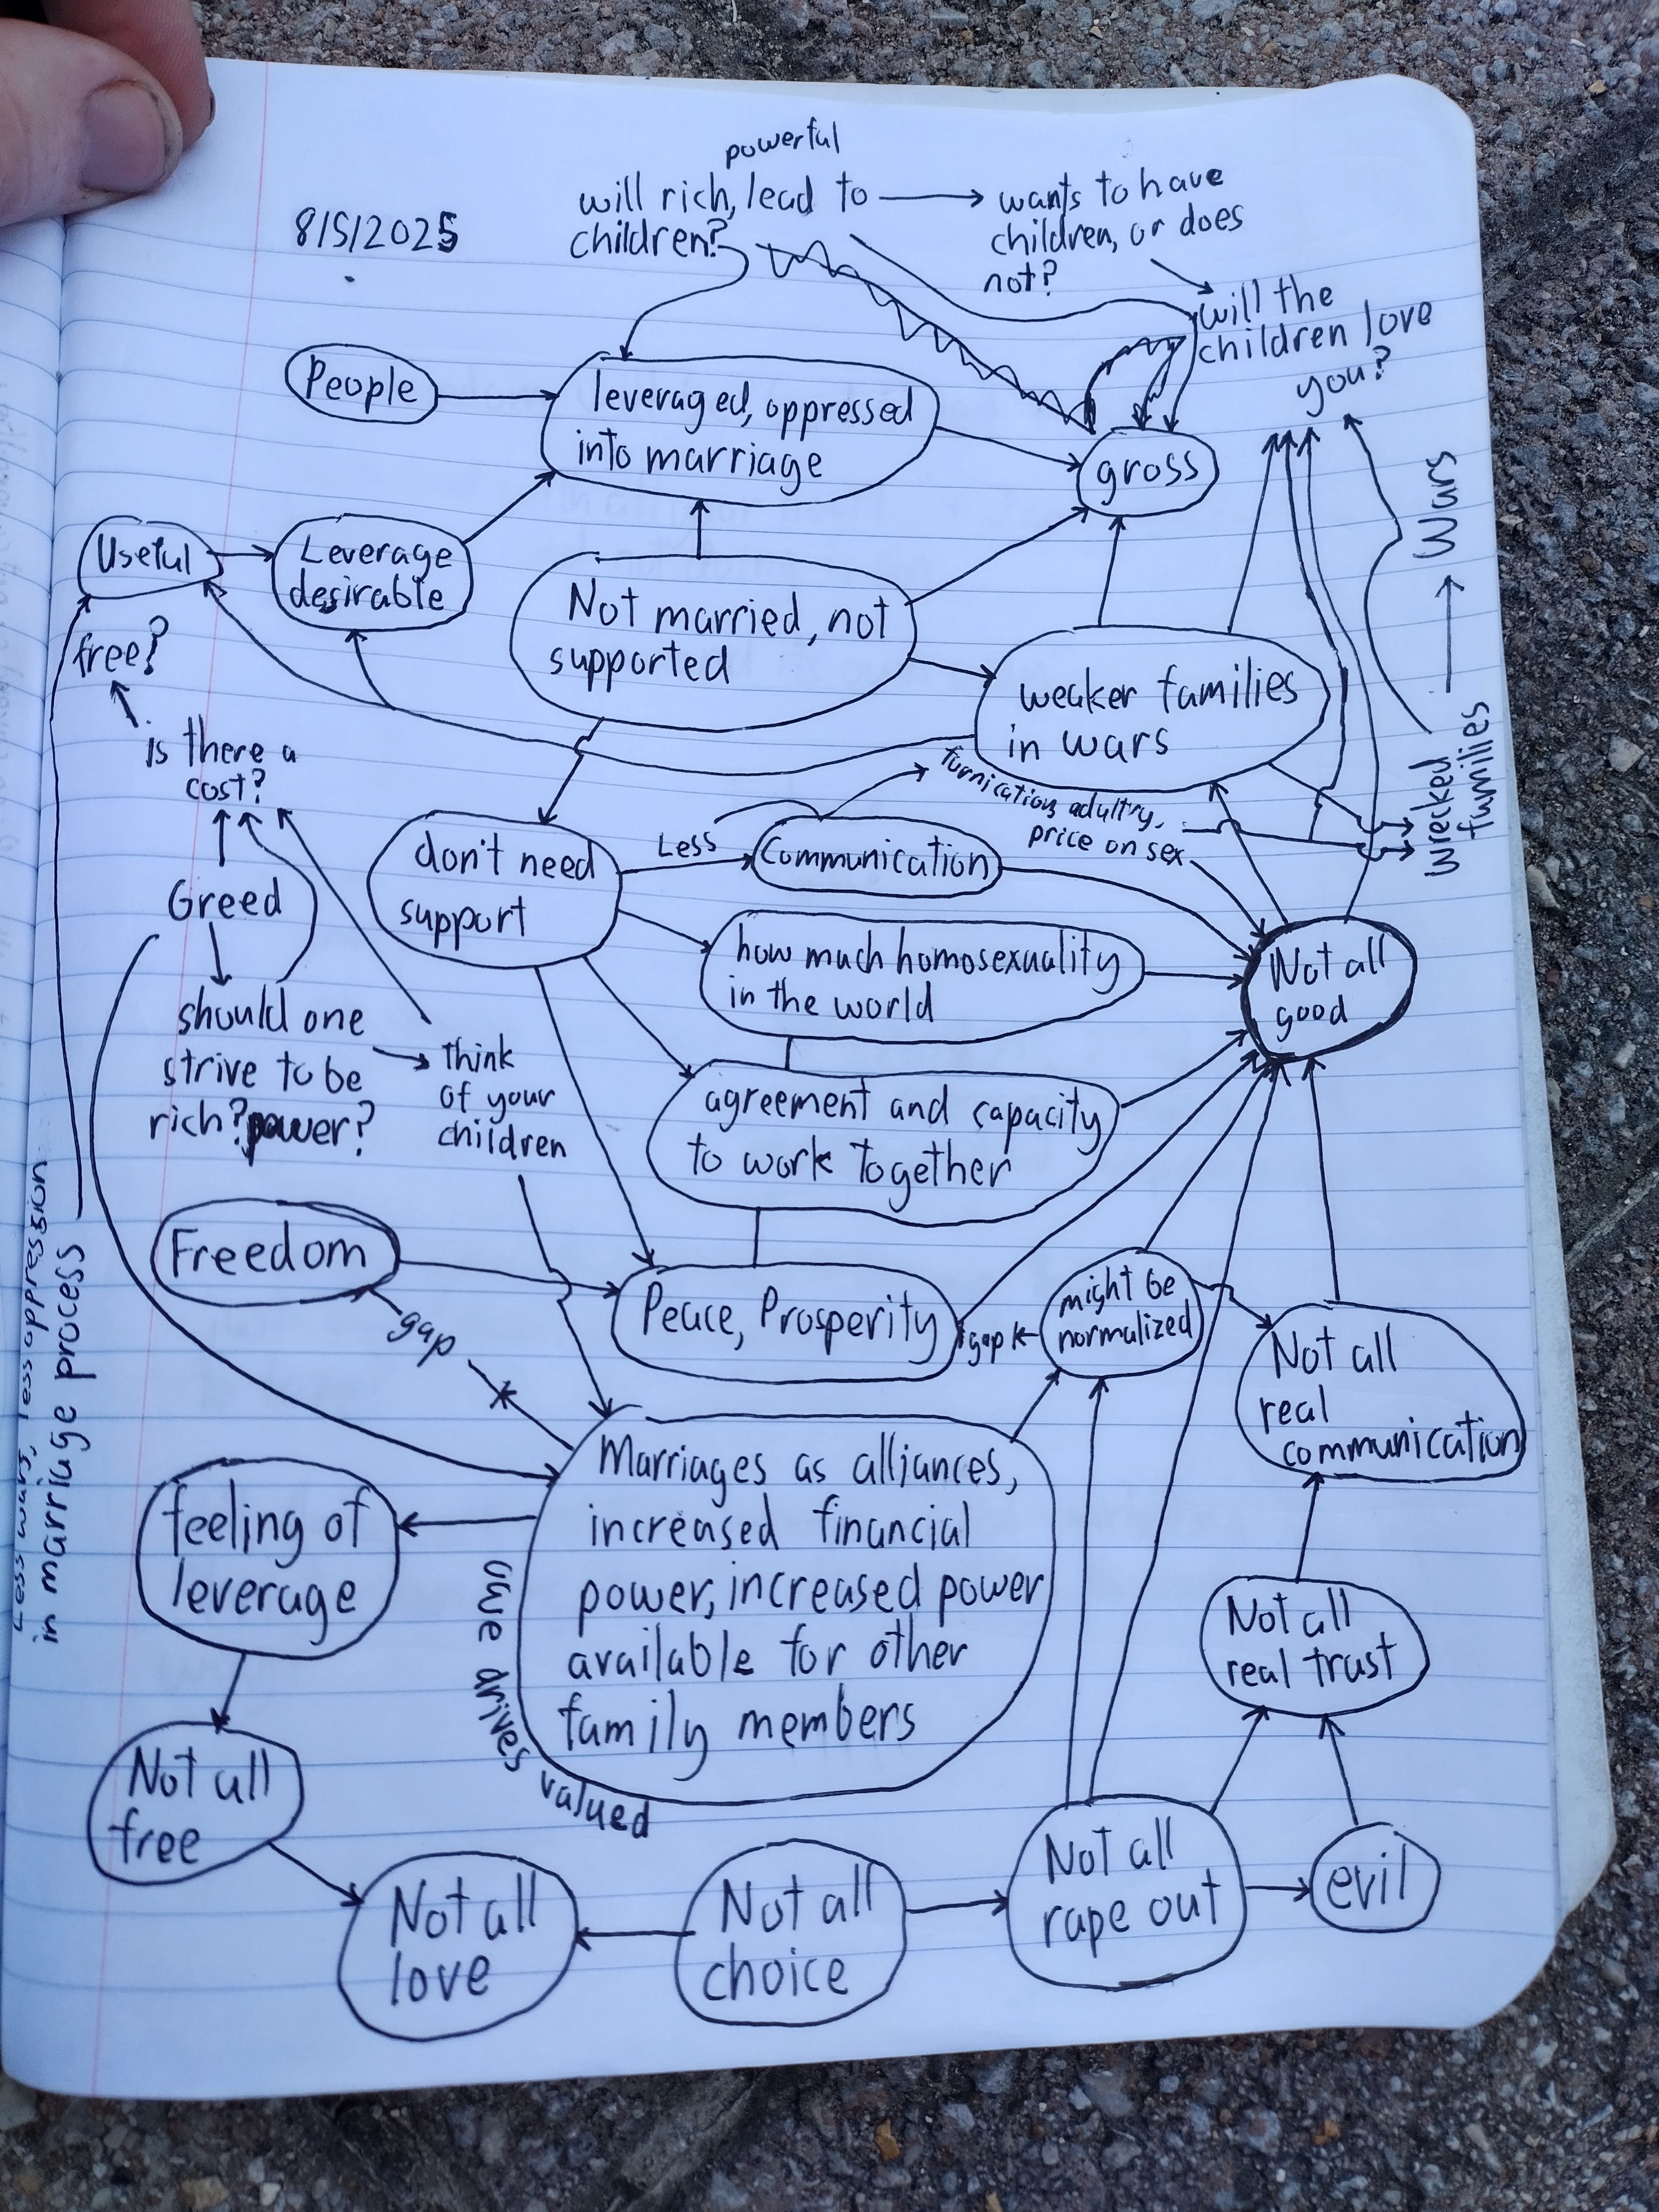 8/5/2025
powerful
will rich, lead to
children?
wants to have
children, or does
not?
will the
children love
you?
People
leveraged, oppressed
into marriage
gross
Wars
Useful
Leverage
desirable
Not married, not
supported
weaker families
in wars
wrecked
families
free?
is there a
cost?
furnication, adultry,
price on sex
Less
Communication
don't need
support
Greed
how much homosexuality
in the world
Not all
good
should one
strive to be
rich? power?
think
of your
children
agreement and capacity
to work together
Less wars, less oppression
in marriage process
Freedom
gap
Peace, Prosperity
gap
might be
normalized
Not all
real
communication
Marriages as alliances,
increased financial
power, increased power
available for other
family members
feeling of
leverage
owe drives valued
Not all
real trust
Not all
free
Not all
love
Not all
choice
Not all
rape out
evil